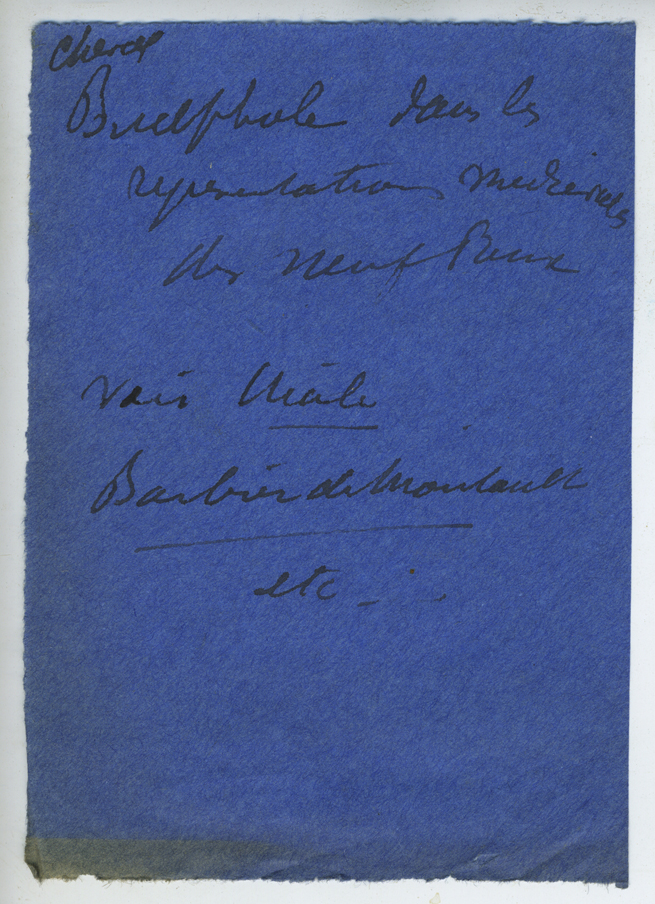 cheval
Bucéphale dans les
representations medievales
des neuf Preux
voir Mâle
Barbier de Montault
etc...